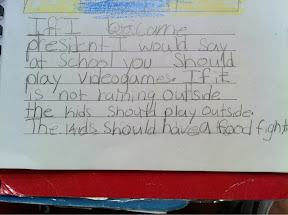 If I become
president I would say
at school you should
play videogames. If it
is not raining outside
the kids should play outside.
The kids should have a food fight